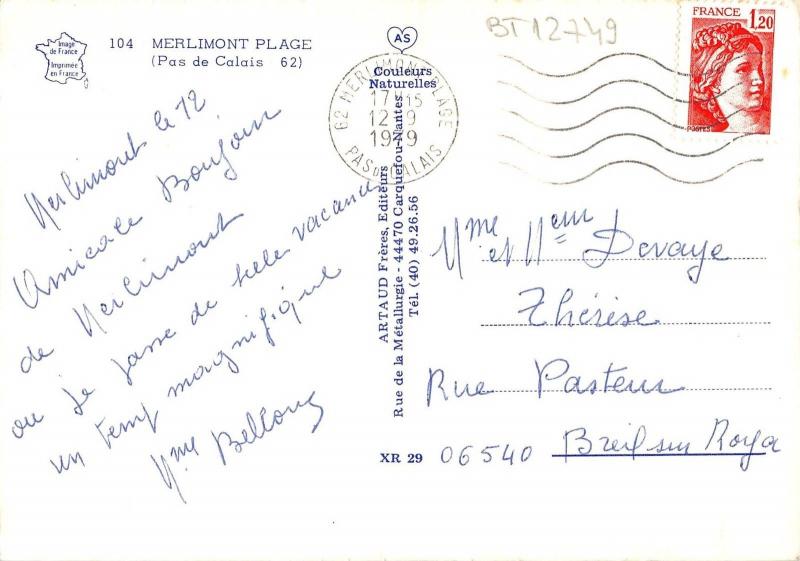 BT12749
Image
de France
Imprimée
en France
104 MERLIMONT PLAGE
(Pas de Calais 62)
AS
Couleurs
Naturelles
62 MERLIMONT-PLAGE
17H15
12-9
1979
PAS DE CALAIS
FRANCE
1,20
POSTES
Merlimont le 12
Amicale Bonjour
de Merlimont
ou je passe de belles vacances
un temps magnifique
Mme Bellony
ARTAUD Frères, Editeurs
Rue de la Métallurgie - 44470 Carquefou-Nantes
Tél. (40) 49.26.56
XR 29
Mme et Mem Devaye
Thérèse
Rue Pasteur
06540 Breil sur Roya